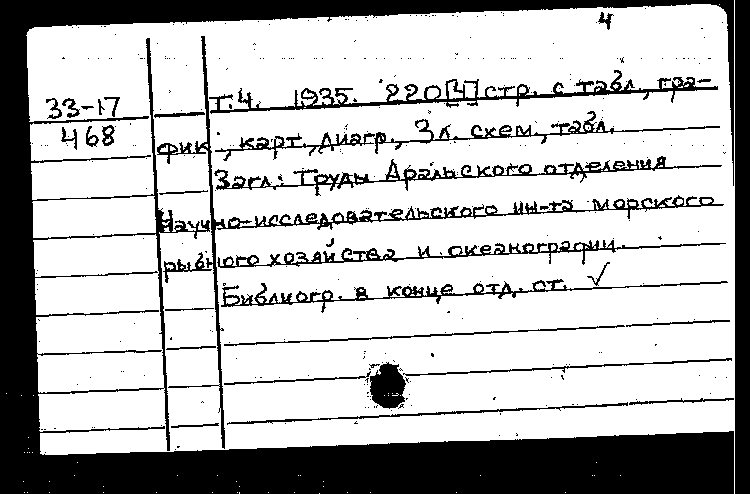 4
33-17
468
Т.4. 1935. 220[4] стр. с табл., гра-
фик., карт., диагр., 3 л. схем., табл.
Загл.: Труды Аральского отделения
Научно-исследовательского ин-та морского
рыбного хозяйства и океанографии.
Библиогр. в конце отд. ст. √